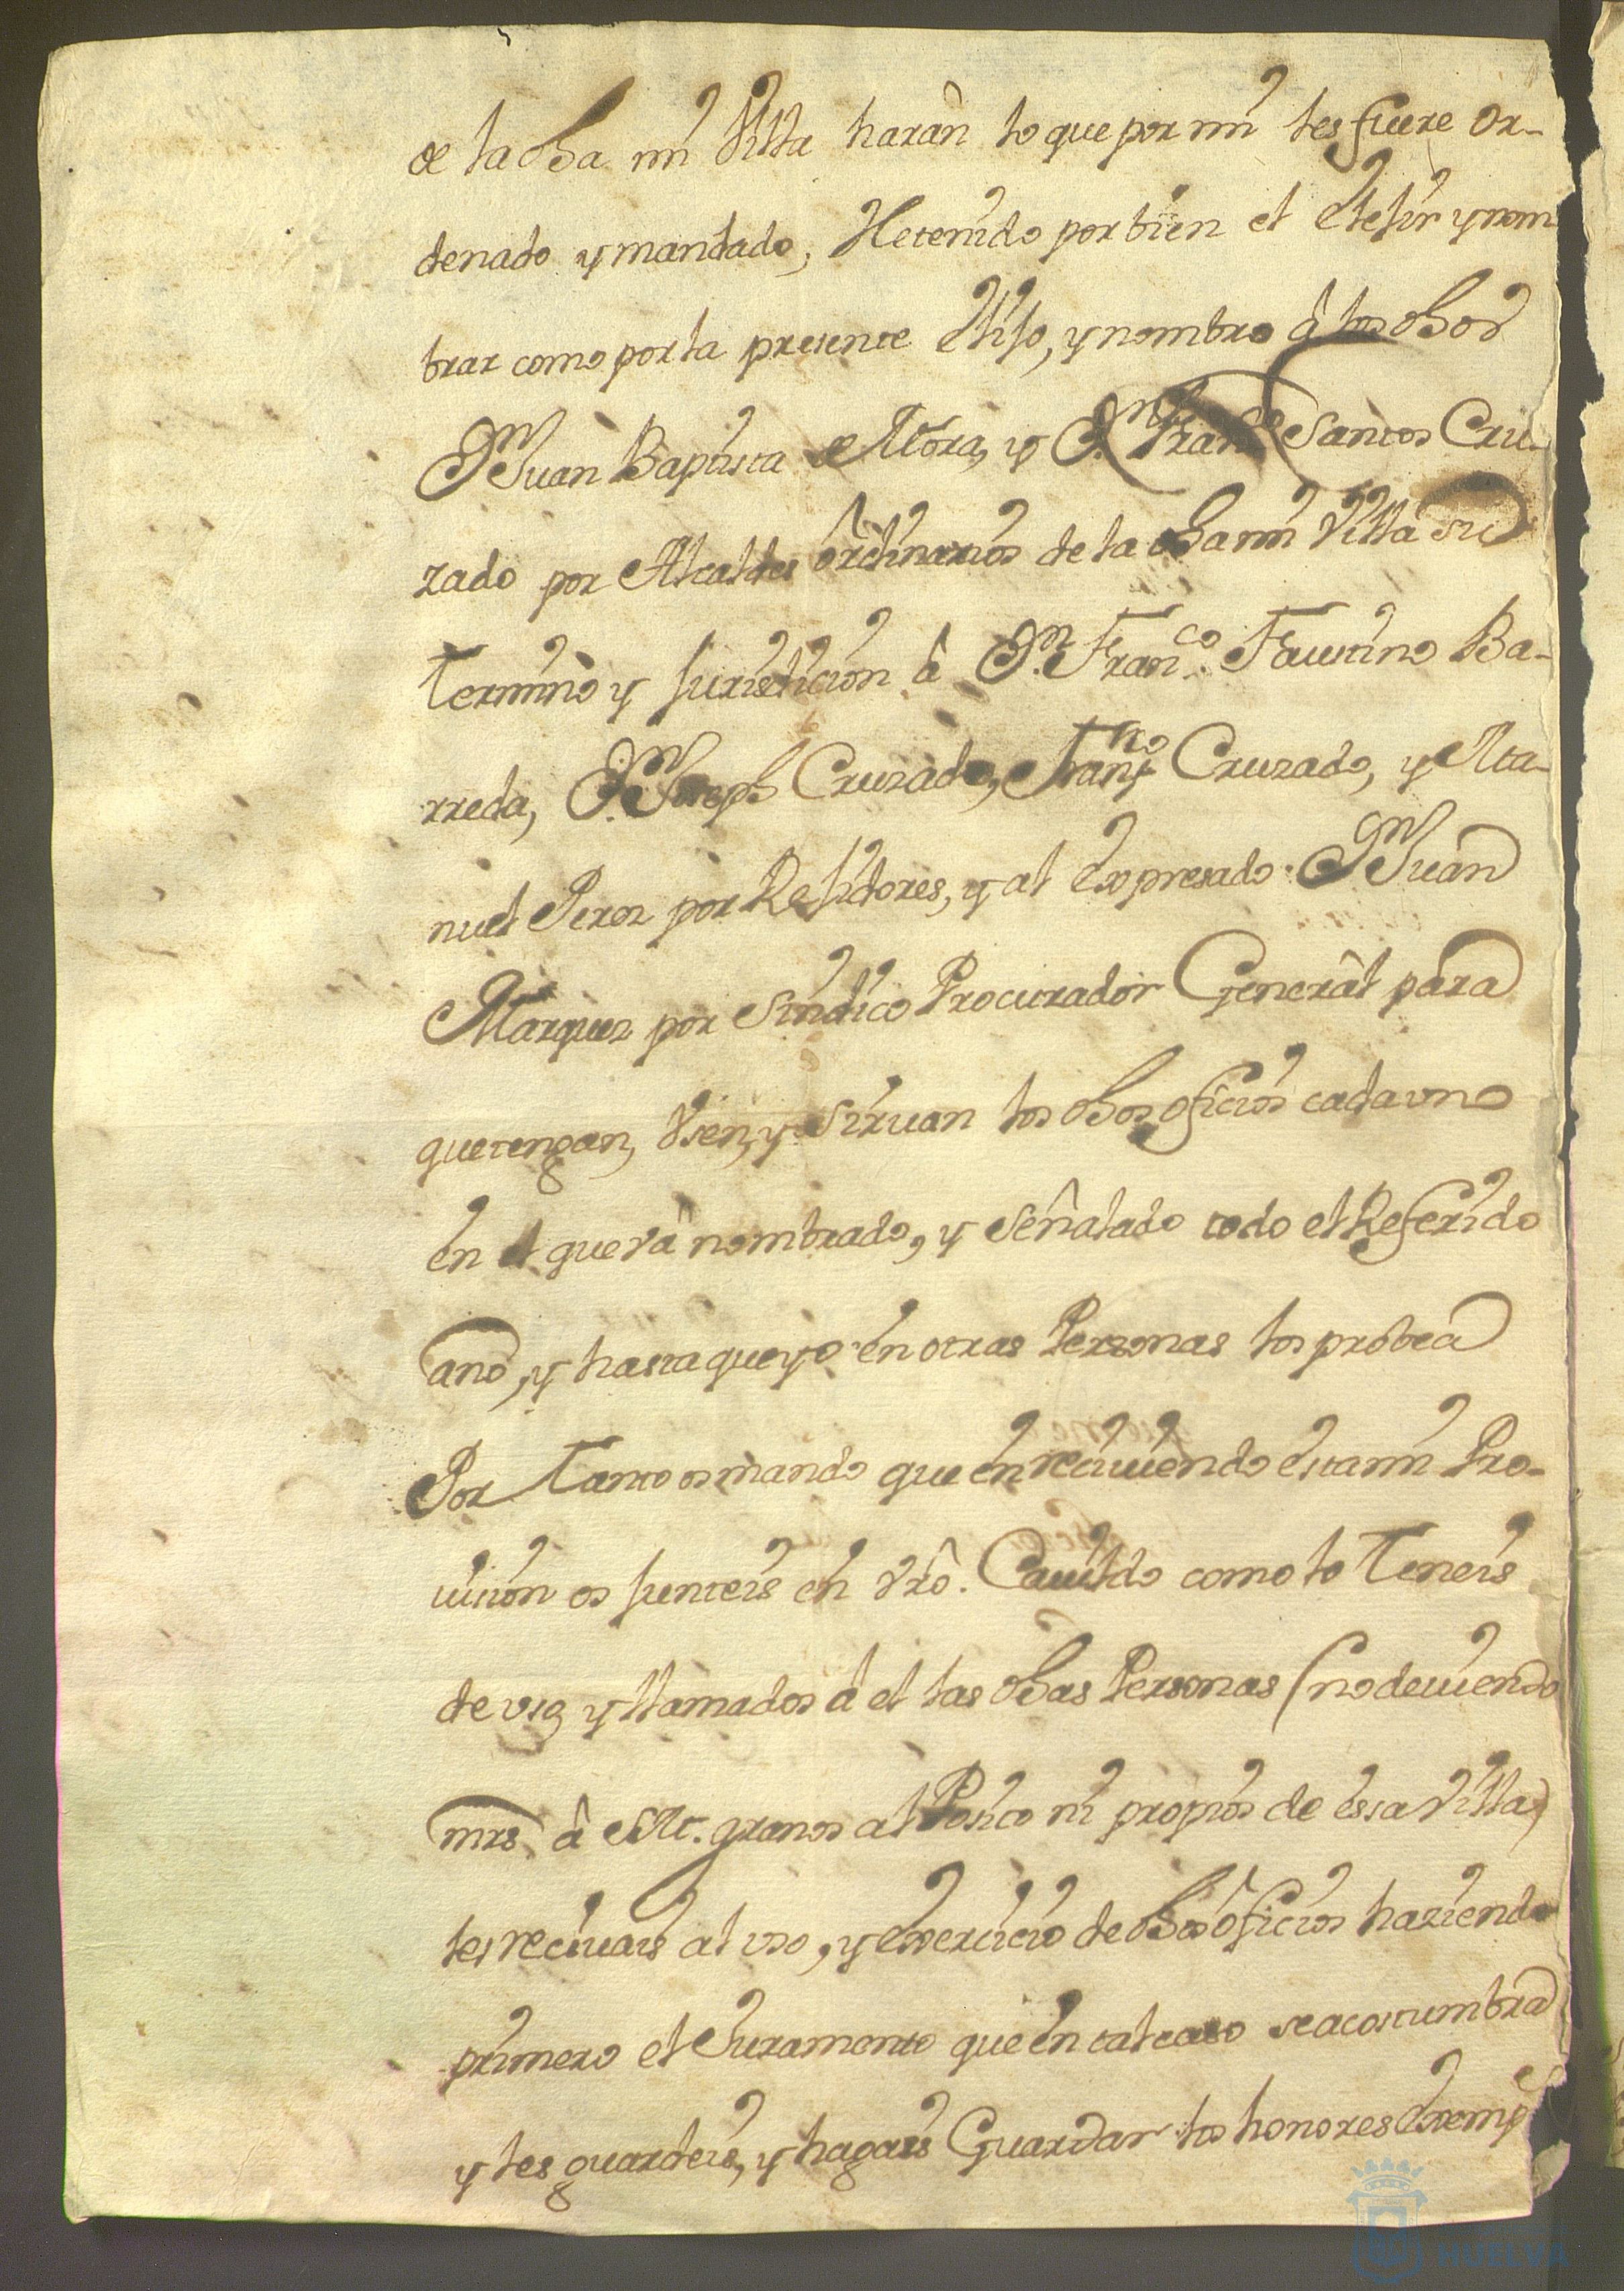 de la dha mi Villa harán lo que por mi les fuere or-
denado y mandado, He tenido por bien el elejir y nom
brar como por la presente elijo, y nombro â los dhos
Dn Juan Baptista de Mora, y Dn. Franco Santos Cru-
zado por Alcaldes ordinarios de la dha mi Villa su
Termino y jurisdicion â Dn. Franco. Faustino Ba-
rreda, Dn. Joseph Cruzado, Franco Cruzado, y Ma-
nuel Perez por Rejidores, y al expresado Dn Juan
Marquez por Sindico Procurador General para
que tengan, Vsen, y Siruan los dhos oficios cada vno
en el que vâ nombrado, y señalado todo el Referido
año, y hasta que yo en otras Personas los probea
Por Tanto os mando que en reciuiendo esta mi Pro-
uision os junteis en vrô. Cauildo como lo Teneis
de vso, y llamados â el las dhas Personas (no deuiendo
mrs. â S.M. granos al Posito ni propios de essa Villa)
les reciuais al vso, y exercicio de dhos oficios haziendo
primero el Juramento que en tal caso se acostumbra
y les guardeis, y hagais Guardar los honores Exemp
HUELVA